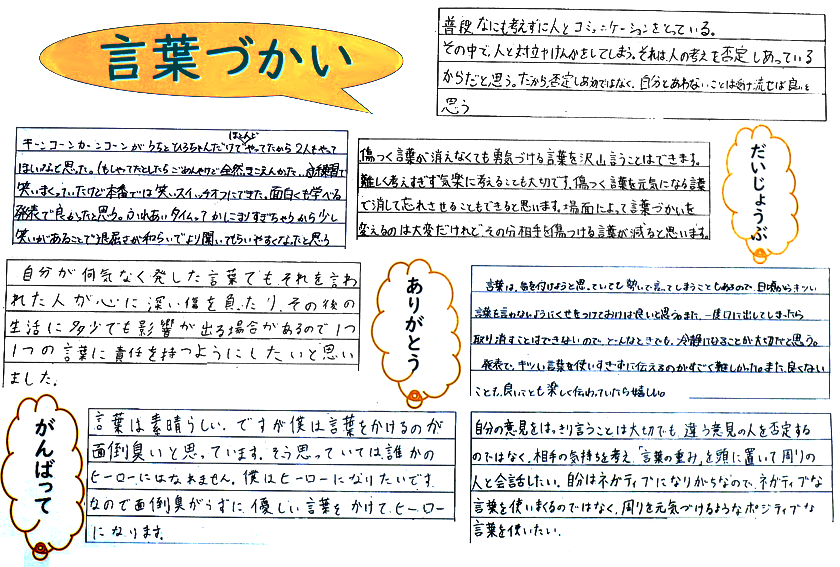 言葉づかい
普段なにも考えずに人とコミュニケーションをとっている。
その中で、人と対立やけんかをしてしまう。それは、人の考えを否定しあっている
からだと思う。だから否定しあうのではなく、自分とあわないことは受け流せば良いと
思う
キーンコーンカーンコーンがうちとひろちゃんだけでほとんどやってたから2人もやって
ほしいなと思った。(もしやってたとしたらごめんやけど全然きこえんかった。)練習で
笑いまくっていたけど本番では笑いスイッチオフにできた。面白くも学べる
発表で良かったと思う。ふれあいタイムってかしこまりすぎちゃうから少し
笑いがあることで退屈さが和らいでより聞いてもらいやすくなったと思う
傷つく言葉が消えなくても勇気づける言葉を沢山言うことはできます。
難しく考えすぎず気楽に考えることも大切です。傷つく言葉を元気になる言葉
で消して忘れさせることもできると思います。場面によって言葉づかいを
変えるのは大変だけれど、その分相手を傷つける言葉が減ると思います。
だいじょうぶ
自分が何気なく発した言葉でもそれを言わ
れた人が心に深い傷を負たり、その後の
生活に多少でも影響が出る場合があるので1つ
1つの言葉に責任を持つようにしたいと思い
ました。
ありがとう
言葉は、気を付けようと思っていても勢いで言ってしまうこともあるので、日頃からキツい
言葉を言わないようにくせをつけておけば良いと思う。また、一度口に出してしまったら
取り消すことはできないので、どんなときでも、冷静になることが大切だと思う。
発表で、キツい言葉を使いすぎずに伝えるのがすごく難しかった。また、良くない
ことも、良いことも楽しく伝わっていたら嬉しい。
がんばって
言葉は素晴らしい。ですが僕は言葉をかけるのが
面倒臭いと思っています。そう思っていては誰かの
ヒーローにはなれません。僕はヒーローになりたいです
なので面倒臭がらずに、優しい言葉をかけて、ヒーロー
になります。
自分の意見をはっきり言うことは大切でも、違う意見の人を否定する
のではなく、相手の気持ちを考え、「言葉の重み」を頭に置いて周りの
人と会話したい。自分はネガティブになりがちなので、ネガティブな
言葉を使いまくるのではなく、周りを元気づけるようなポジティブな
言葉を使いたい。